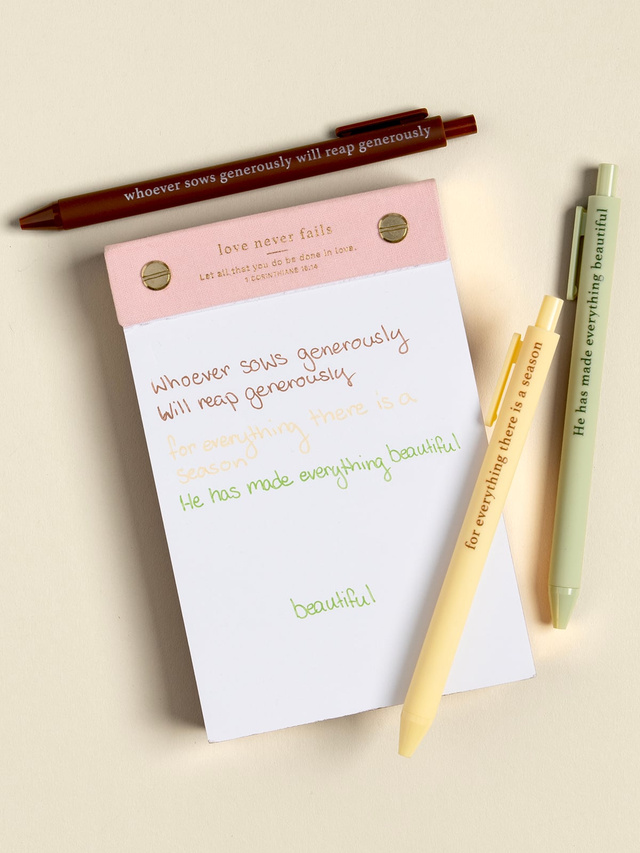 whoever sows generously will reap generously
love never fails
Let all that you do be done in love.
1 CORINTHIANS 16:14
Whoever sows generously
Will reap generously
for everything there is a
season
He has made everything beautiful
beautiful
for everything there is a season
He has made everything beautiful